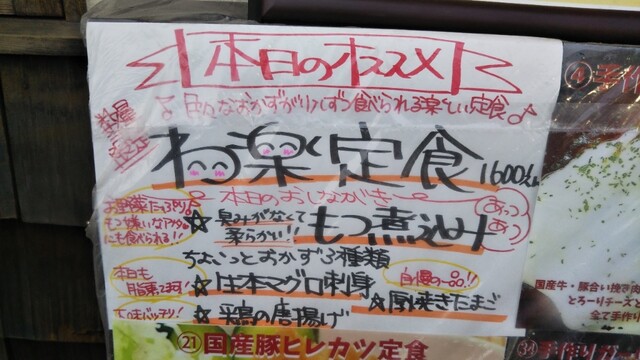 本日のオススメ
♪色んなおかずがパくずつ食べられる楽しい定食♪
数量限定
わ楽定食
1600えん
本日のおしながき
お野菜たっぷり♪
もつ嫌いなアナタ
にも食べられる!!
☆臭みがなくて
柔らかい!!
もつ煮込み
あっつあつ
ちょこっとおかず3種類
本日も
脂乗ってます!
☆生本マグロ刺身
自慢の一品!!
☆厚焼きたまご
☆鶏の唐揚げ
㉑国産豚ヒレカツ定食
④手作
国産牛・豚合い挽き肉
とろーりチーズ
全て手作り